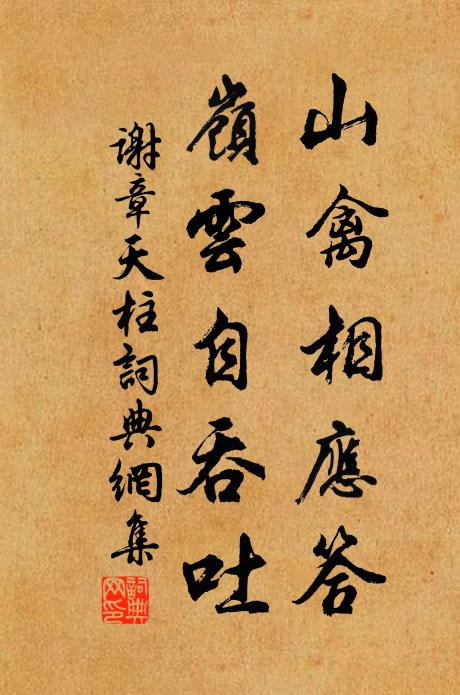 山禽相應答
嶺雲自吞吐
謝章天柱詞典網集
詞典网印